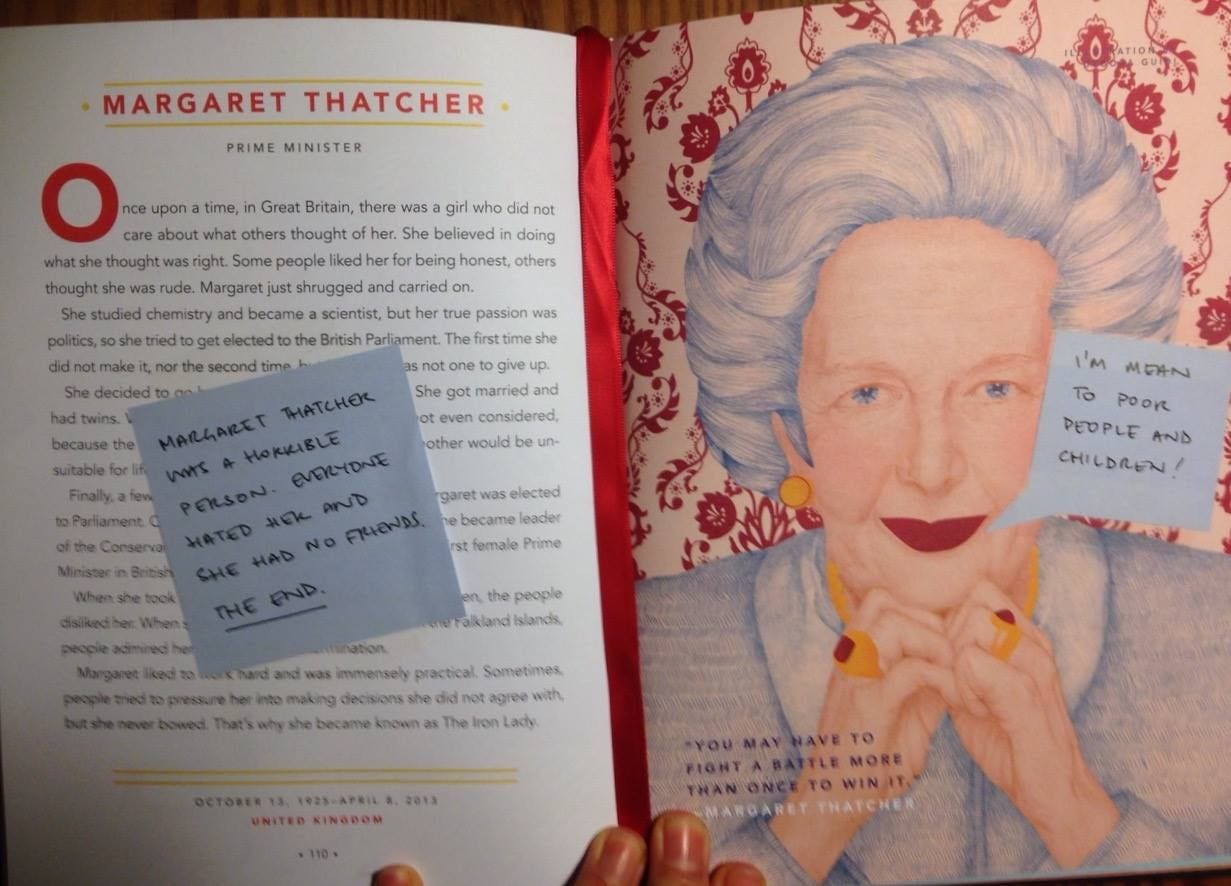 MARGARET THATCHER
PRIME MINISTER
Once upon a time, in Great Britain, there was a girl who did not
care about what others thought of her. She believed in doing
what she thought was right. Some people liked her for being honest, others
thought she was rude. Margaret just shrugged and carried on.
She studied chemistry and became a scientist, but her true passion was
politics, so she tried to get elected to the British Parliament. The first time she
did not make it, nor the second time, as not one to give up.
She decided to go She got married and
had twins. ot even considered,
because the other would be un-
suitable for
Finally, a few rgaret was elected
to Parliament. he became leader
of the rst female Prime
Minister in British
When she took en, the people
disliked her. When the Falkland Islands,
people admired her mination.
Margaret liked to work hard and was immensely practical. Sometimes,
people tried to pressure her into making decisions she did not agree with,
but she never bowed. That's why she became known as The Iron Lady.
OCTOBER 13, 1925–APRIL 8, 2013
UNITED KINGDOM
• 110 •
MARGARET THATCHER
WAS A HORRIBLE
PERSON. EVERYONE
HATED HER AND
SHE HAD NO FRIENDS.
THE END.
I'M MEAN
TO POOR
PEOPLE AND
CHILDREN!
"YOU MAY HAVE TO
FIGHT A BATTLE MORE
THAN ONCE TO WIN IT."
—MARGARET THATCHER